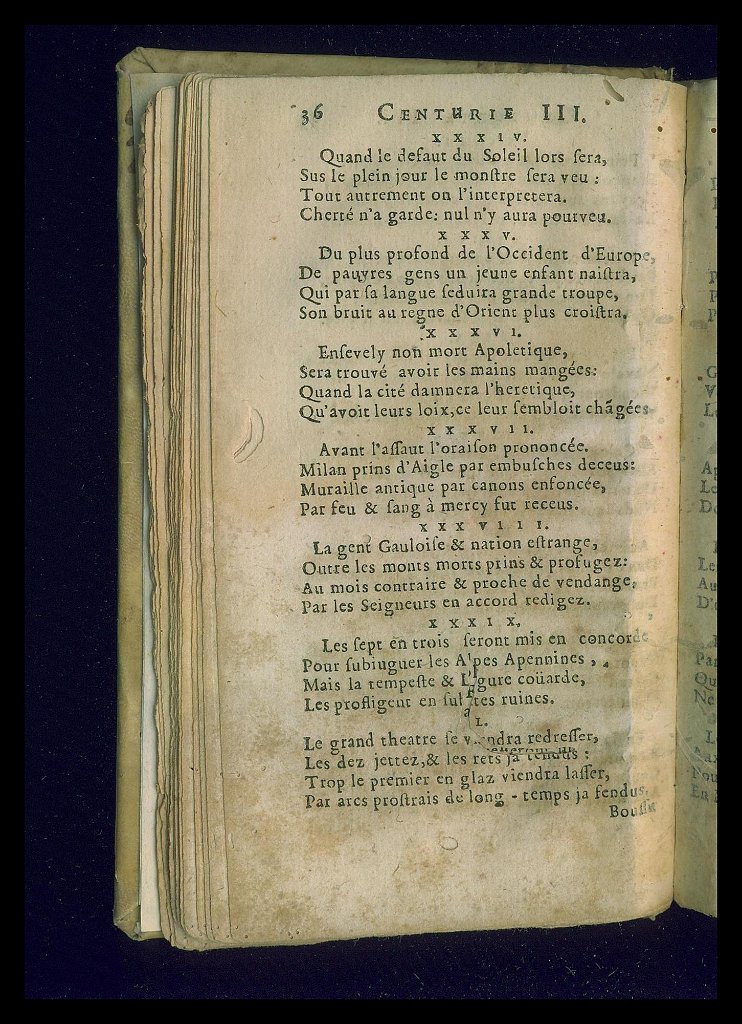 36 CENTURIE III.
XXXIV.
Quand le defaut du Soleil lors ſera,
Sus le plein jour le monſtre ſera veu :
Tout autrement on l'interpretera.
Cherté n'a garde: nul n'y aura pourveu.
XXXV.
Du plus profond de l'Occident d'Europe,
De pauvres gens un jeune enfant naiſtra,
Qui par ſa langue ſeduira grande troupe,
Son bruit au regne d'Orient plus croiſtra.
XXXVI.
Enſevely non mort Apoletique,
Sera trouvé avoir les mains mangées:
Quand la cité damnera l'heretique,
Qu'avoit leurs loix,ce leur ſembloit chãgées
XXXVII.
Avant l'aſſaut l'oraiſon prononcée.
Milan prins d'Aigle par embuſches deceus:
Muraille antique par canons enfoncée,
Par feu & ſang à mercy fut receus.
XXXVIII.
La gent Gauloiſe & nation eſtrange,
Outre les monts morts prins & profugez:
Au mois contraire & proche de vendange,
Par les Seigneurs en accord redigez.
XXXIX.
Les ſept en trois ſeront mis en concorde
Pour ſubiuguer les Alpes Apennines ,
Mais la tempeſte & Ligure coüarde,
Les profligent en ruines.
L.
Le grand theatre ſe viendra redreſſer,
Les dez jettez,& les rets ja tendus :
Trop le premier en glaz viendra laſſer,
Par arcs proſtrais de long - temps ja fendus.